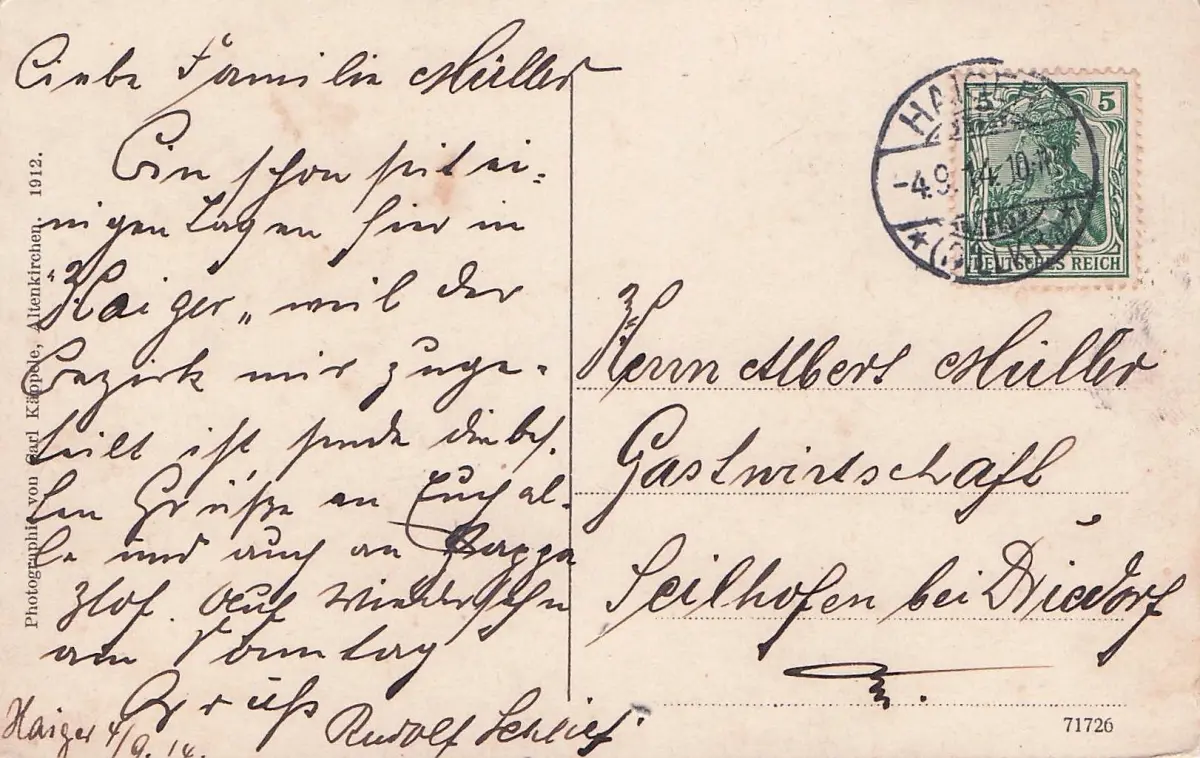 Liebe Familie Müller
Bin schon seit ei-
nigen Tagen hier in
"Haiger" weil der
Bezirk mir zuge-
teilt ist sende die bes.
ten Grüße an Euch al-
le und auch an Pappa
Auf Wiedersehn
am Sonntag
Gruß
Rudolf Schlief
Haiger 4/9.14.
Photographie von Carl Käppele, Altenkirchen. 1912.
HAIGER
-4.9.14.10-11
*(DILLKR.)*
5 5
DEUTSCHES REICH
Herrn Albert Müller
Gastwirtschaft
Seilhofen bei Driedorf
71726